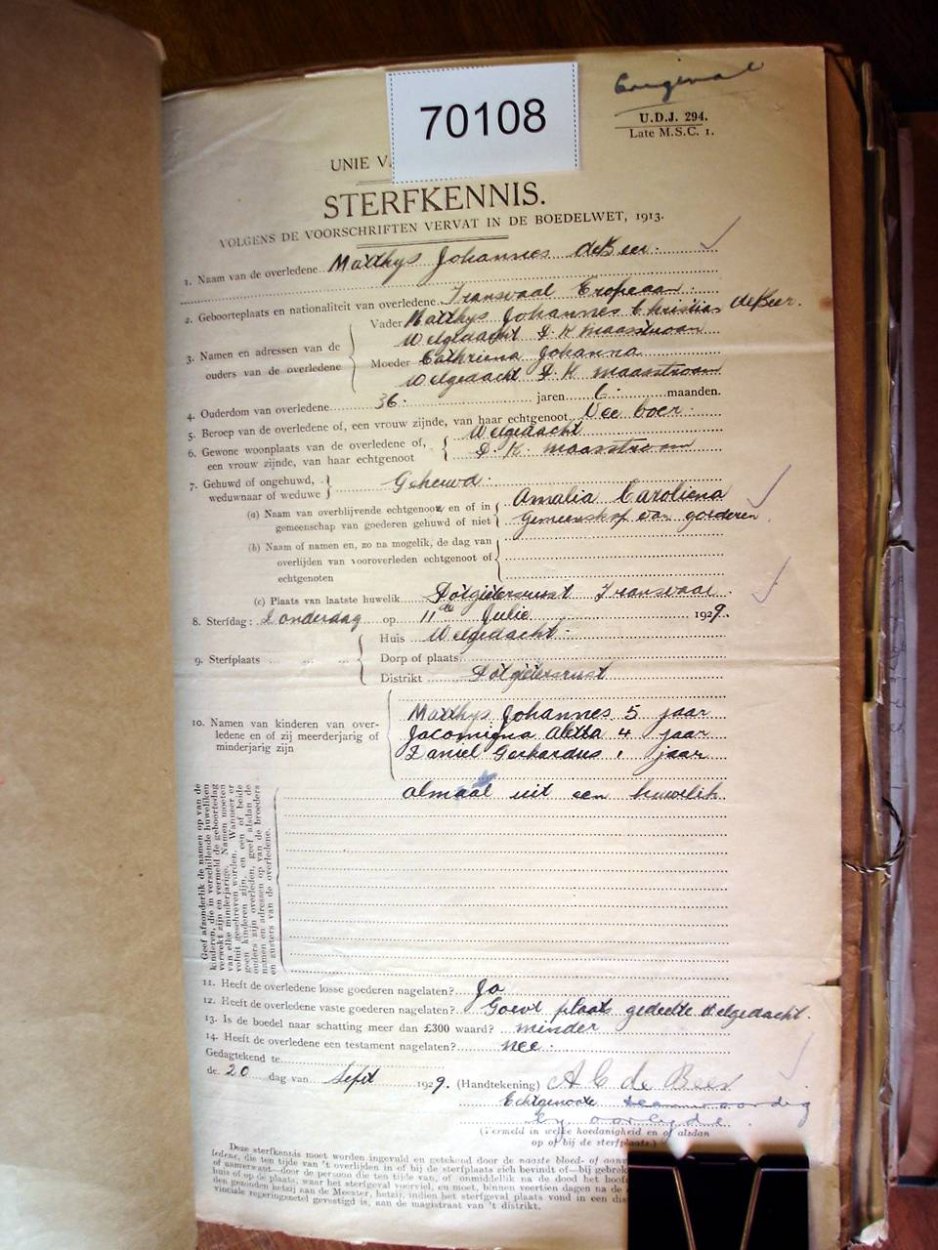 Original
70108
U.D.J. 294.
Late M.S.C. 1.
UNIE V
STERFKENNIS.
VOLGENS DE VOORSCHRIFTEN VERVAT IN DE BOEDELWET, 1913.
1. Naam van de overledene Matthys Johannes de Beer.
2. Geboorteplaats en nationaliteit van overledene. Transvaal Eropeaan.
3. Namen en adressen van de ouders van de overledene
Vader Matthys Johannes Christian de Beer.
Welgedacht P. K. Maasstroom
Moeder Cathriena Johanna
Welgedacht P. K. Maasstroom
4. Ouderdom van overledene 36. jaren 6 maanden.
5. Beroep van de overledene of, een vrouw zijnde, van haar echtgenoot Vee boer.
6. Gewone woonplaats van de overledene of, een vrouw zijnde, van haar echtgenoot
Welgedacht
P. K. Maasstroom
7. Gehuwd of ongehuwd, weduwnaar of weduwe Geheuwd.
(a) Naam van overblijvende echtgenoot en of in gemeenschap van goederen gehuwd of niet
Amalia Caroliena
Gemeenskap van goederen
(b) Naam of namen en, zo na mogelik, de dag van overlijden van vooroverleden echtgenoot of echtgenoten
(c) Plaats van laatste huwelik Potgietersrust Transvaal
8. Sterfdag: Donderdag op 11de Julie 1929.
9. Sterfplaats
Huis Welgedacht.
Dorp of plaats
Distrikt Potgietersrust
10. Namen van kinderen van overledene en of zij meerderjarig of minderjarig zijn
Matthys Johannes 5 jaar
Jacomigna Aletta 4 jaar
Daniel Gerhardus 1 jaar
almaal uit een huwelik.
Geef afzonderlik de namen op van de
kinderen, die in verschillende huweliken
verwekt zijn en vermeld de geboortedag
van elke minderjarige. Namen moeten
voluit geschreven worden. Wanneer er
geen kinderen zijn, en een of beide
ouders zijn overleden, geef alsdan de
namen en adressen op van de broeders
en zusters van de overledene.
11. Heeft de overledene losse goederen nagelaten? Ja
12. Heeft de overledene vaste goederen nagelaten? Goevt plaats gedeelte Welgedacht.
13. Is de boedel naar schatting meer dan £300 waard? minder
14. Heeft de overledene een testament nagelaten? nee.
Gedagtekend te
de 20 dag van Sept 1929. (Handtekening) A C de Beer
Echtgenoote teenwoordig
by oorlyde.
(Vermeld in welke hoedanigheid en of alsdan
op of bij de sterfplaats.)
Deze sterfkennis moet worden ingevuld en getekend door de naaste bloed- of aanv
ledene, die ten tijde van 't overlijden in of bij de sterfplaats zich bevindt of—bij gebrek
of aanwezigheid door de persoon die ten tijde van, of onmiddellik na de dood het hoof
huis of op de plaats, waar het sterfgeval voorviel, en moet, binnen veertien dagen na de
den gezonden hetzij aan de Meester, hetzij, indien het sterfgeval plaats vond in een dis
vinciale regeringszetel gevestigd is, aan de magistraat van 't distrikt.